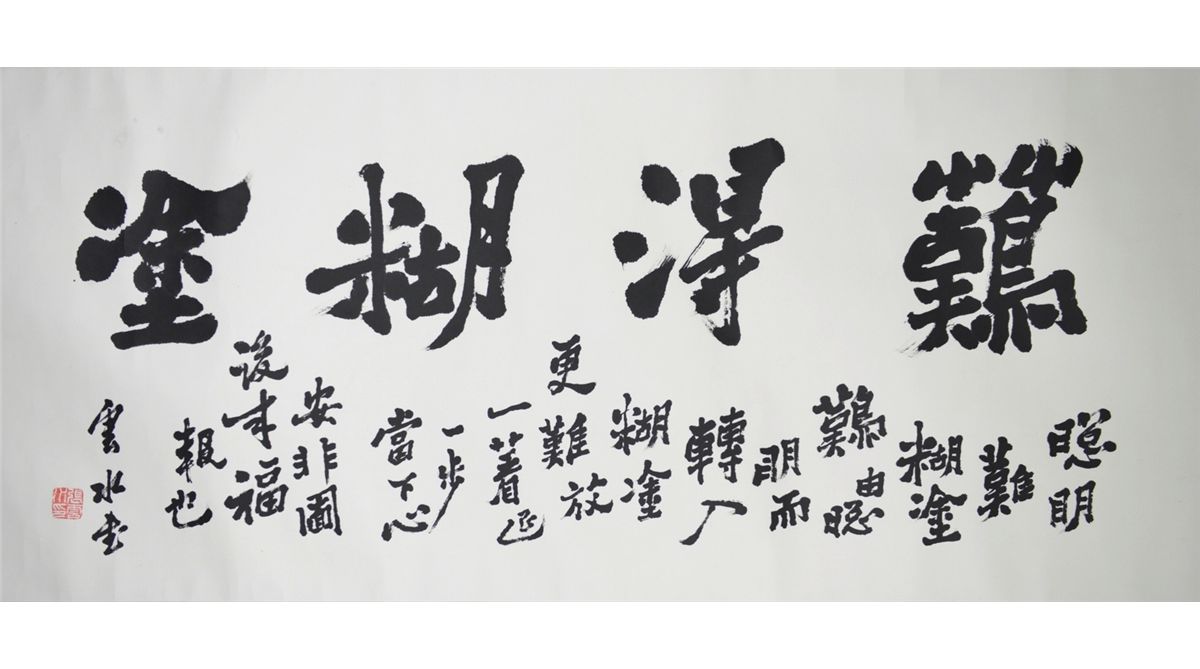 難得糊塗
聪明
難
糊塗
難由聪
明而
轉入
糊塗
更難放
一着退
一步
當下心
安非圖
後来福
報也
雲水书